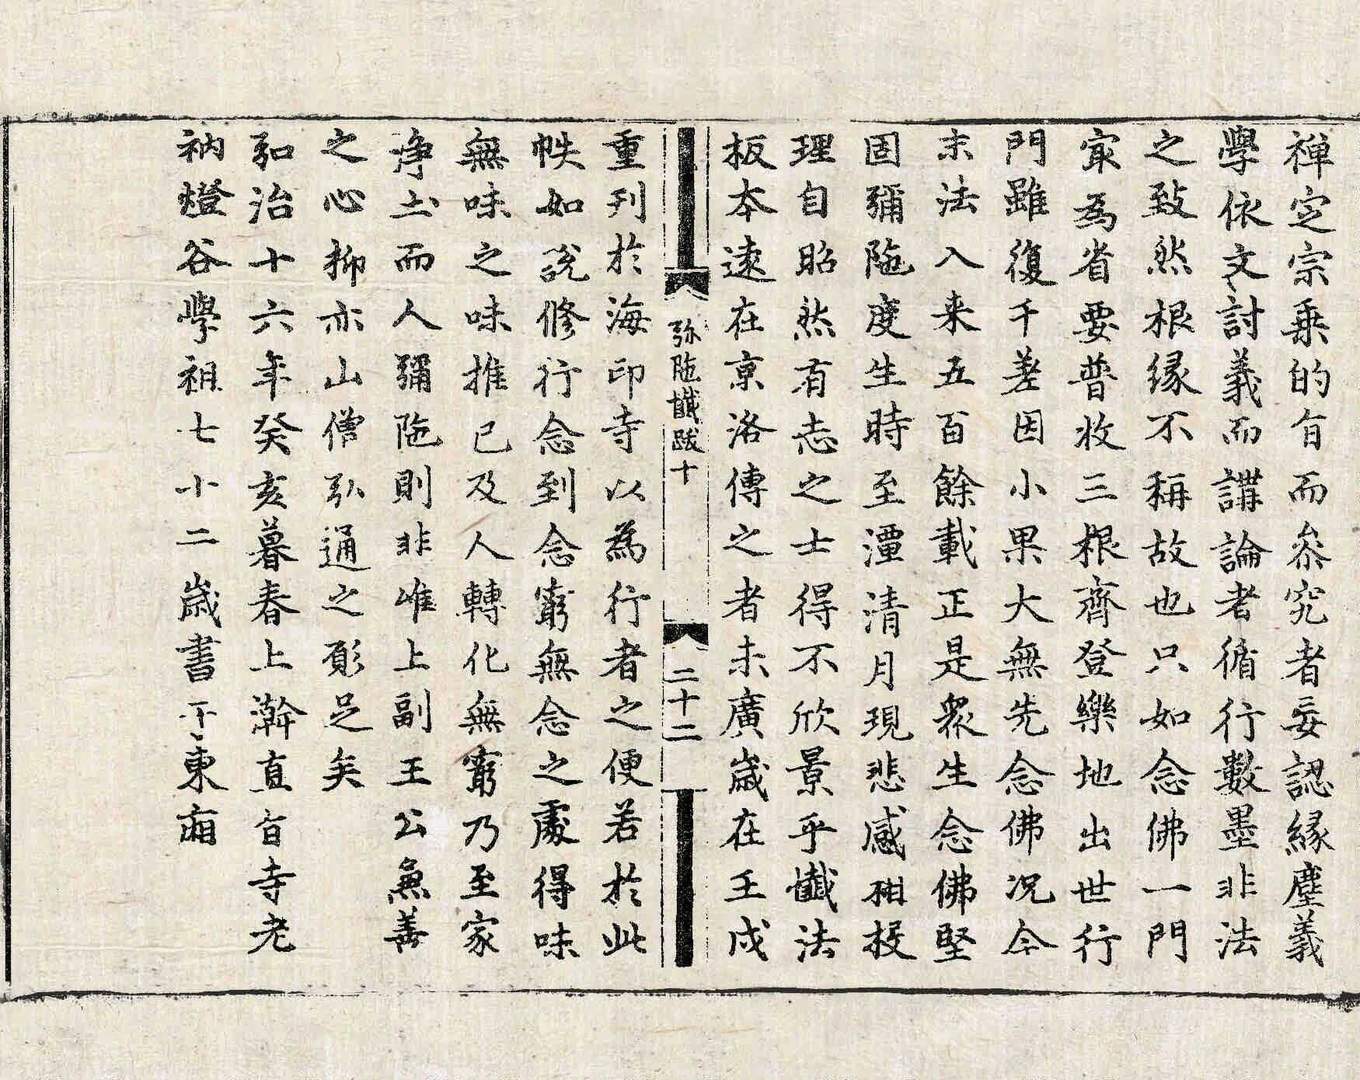 禅定宗乗的㫖而叅究者妄認緣塵義
學依文討義而講論者循行數墨非法
之致然根緣不稱故也只如念佛一門
㝡為省要普收三根齊登樂地出世行
門雖復千差因小果大無先念佛况今
末法入来五百餘載正是衆生念佛堅
固彌陁度生時至潭清月現悲感相投
理自昭然有志之士得不欣景乎懺法
板本逺在京洛傳之者未廣歳在壬戌
弥陁懺跋十
二十二
重刊於海印寺以為行者之便若於此
帙如說修行念到念窮無念之處得味
無味之味推已及人轉化無窮乃至家
淨土而人彌陁則非唯上副王公兼善
之心抑亦山僧弘通之願足矣
弘治十六年癸亥暮春上澣直㫖寺老
衲燈谷學祖七十二歳書于東廂